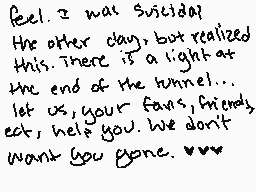 feel. I was suicidal
the other day, but realized
this. There is a light at
the end of the tunnel...
let us, your fans, friends,
ect, help you. We don't
want you gone. ♥♥♥